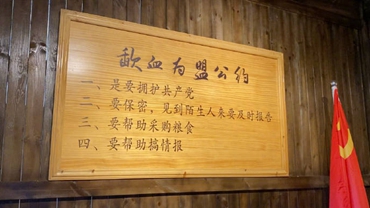 歃血为盟公约
一、是要拥护共产党
二、要保密，见到陌生人来要及时报告
三、要帮助采购粮食
四、要帮助搞情报